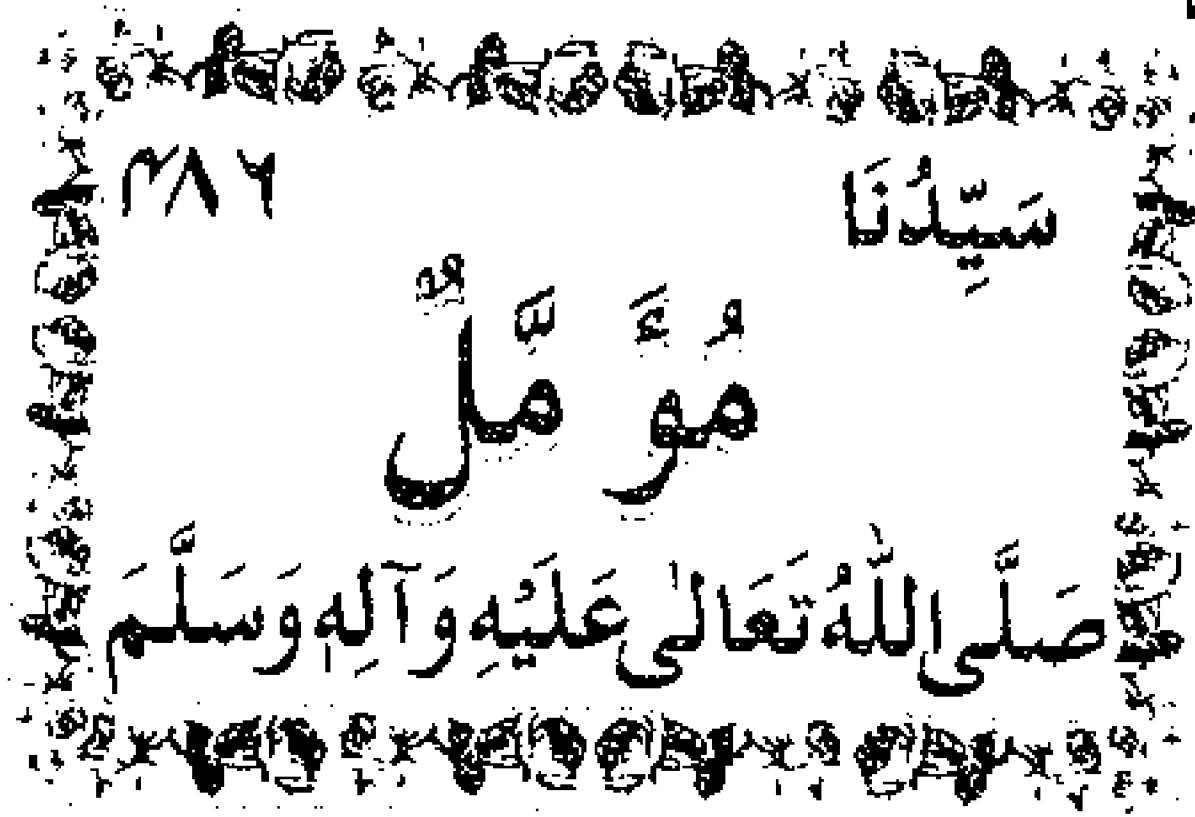 سَيِّدُنَا ۳۸۶
مُؤَمَّلٌ
صَلَّى اللّٰهُ تَعَالٰى عَلَيْهِ وَآلِهِ وَسَلَّمَ